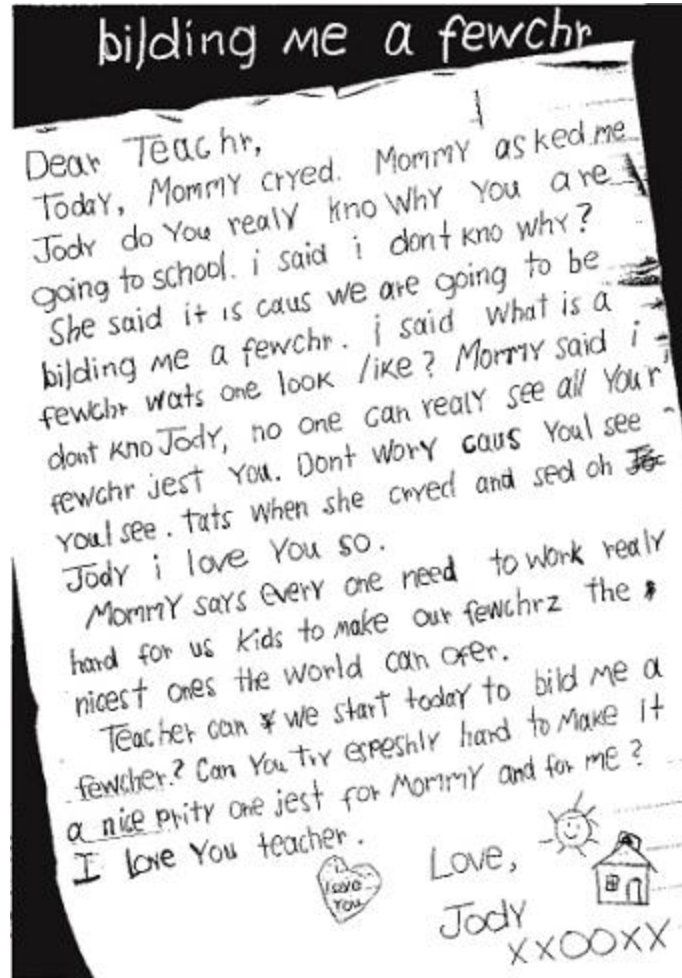 bilding me a fewchr
Dear Teachr,
Today, Mommy cryed. Mommy asked me
Jody do You realy kno Why You are
going to school. i said i dont kno why?
She said it is caus we are going to be
bilding me a fewchr. i said what is a
fewchr wats one look like? Mommy said i
dont kno Jody, no one can realy see all Your
fewchr jest You. Dont wory caus Youl see
Youl see. tats when she cryed and sed oh
Jody i love You so.
Mommy says every one need to work realy
hard for us kids to make our fewchrz the
nicest ones the world can ofer.
Teacher can we start today to bild me a
fewcher? Can You Try espeshly hard to Make it
a nice prity one jest for Mommy and for me?
I love You teacher.
I love
You
Love,
Jody
XXOOXX